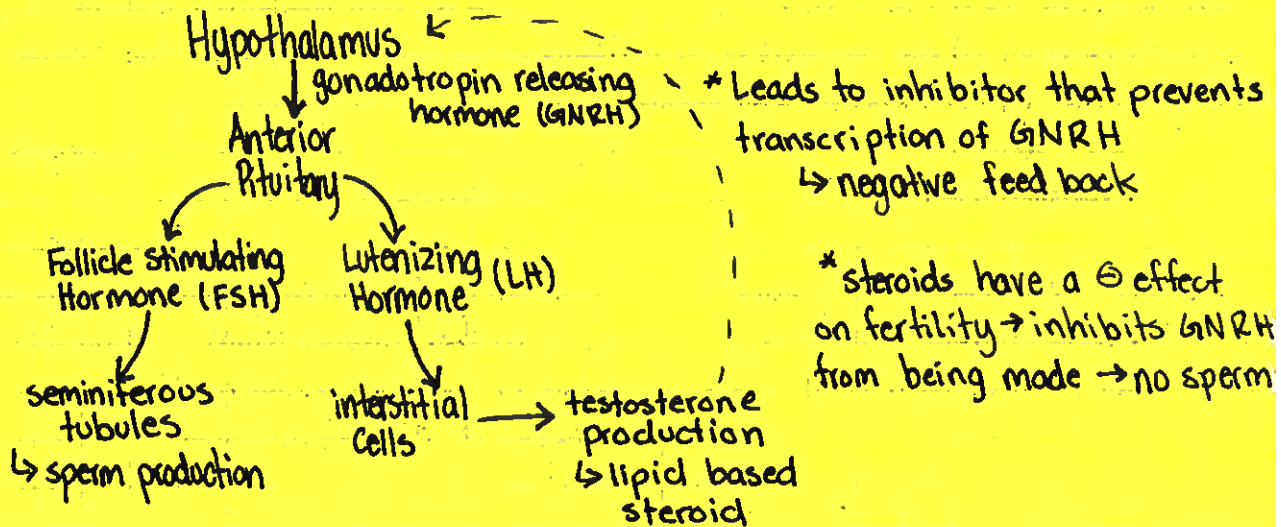 Hypothalamus
gonadotropin releasing
hormone (GNRH)
Anterior
Pituitary
Follicle stimulating
Hormone (FSH)
Lutenizing (LH)
Hormone
seminiferous
tubules
↳ sperm production
interstitial
cells
testosterone
production
↳ lipid based
steroid
* Leads to inhibitor that prevents
transcription of GNRH
↳ negative feed back
* steroids have a ⊖ effect
on fertility → inhibits GNRH
from being made → no sperm